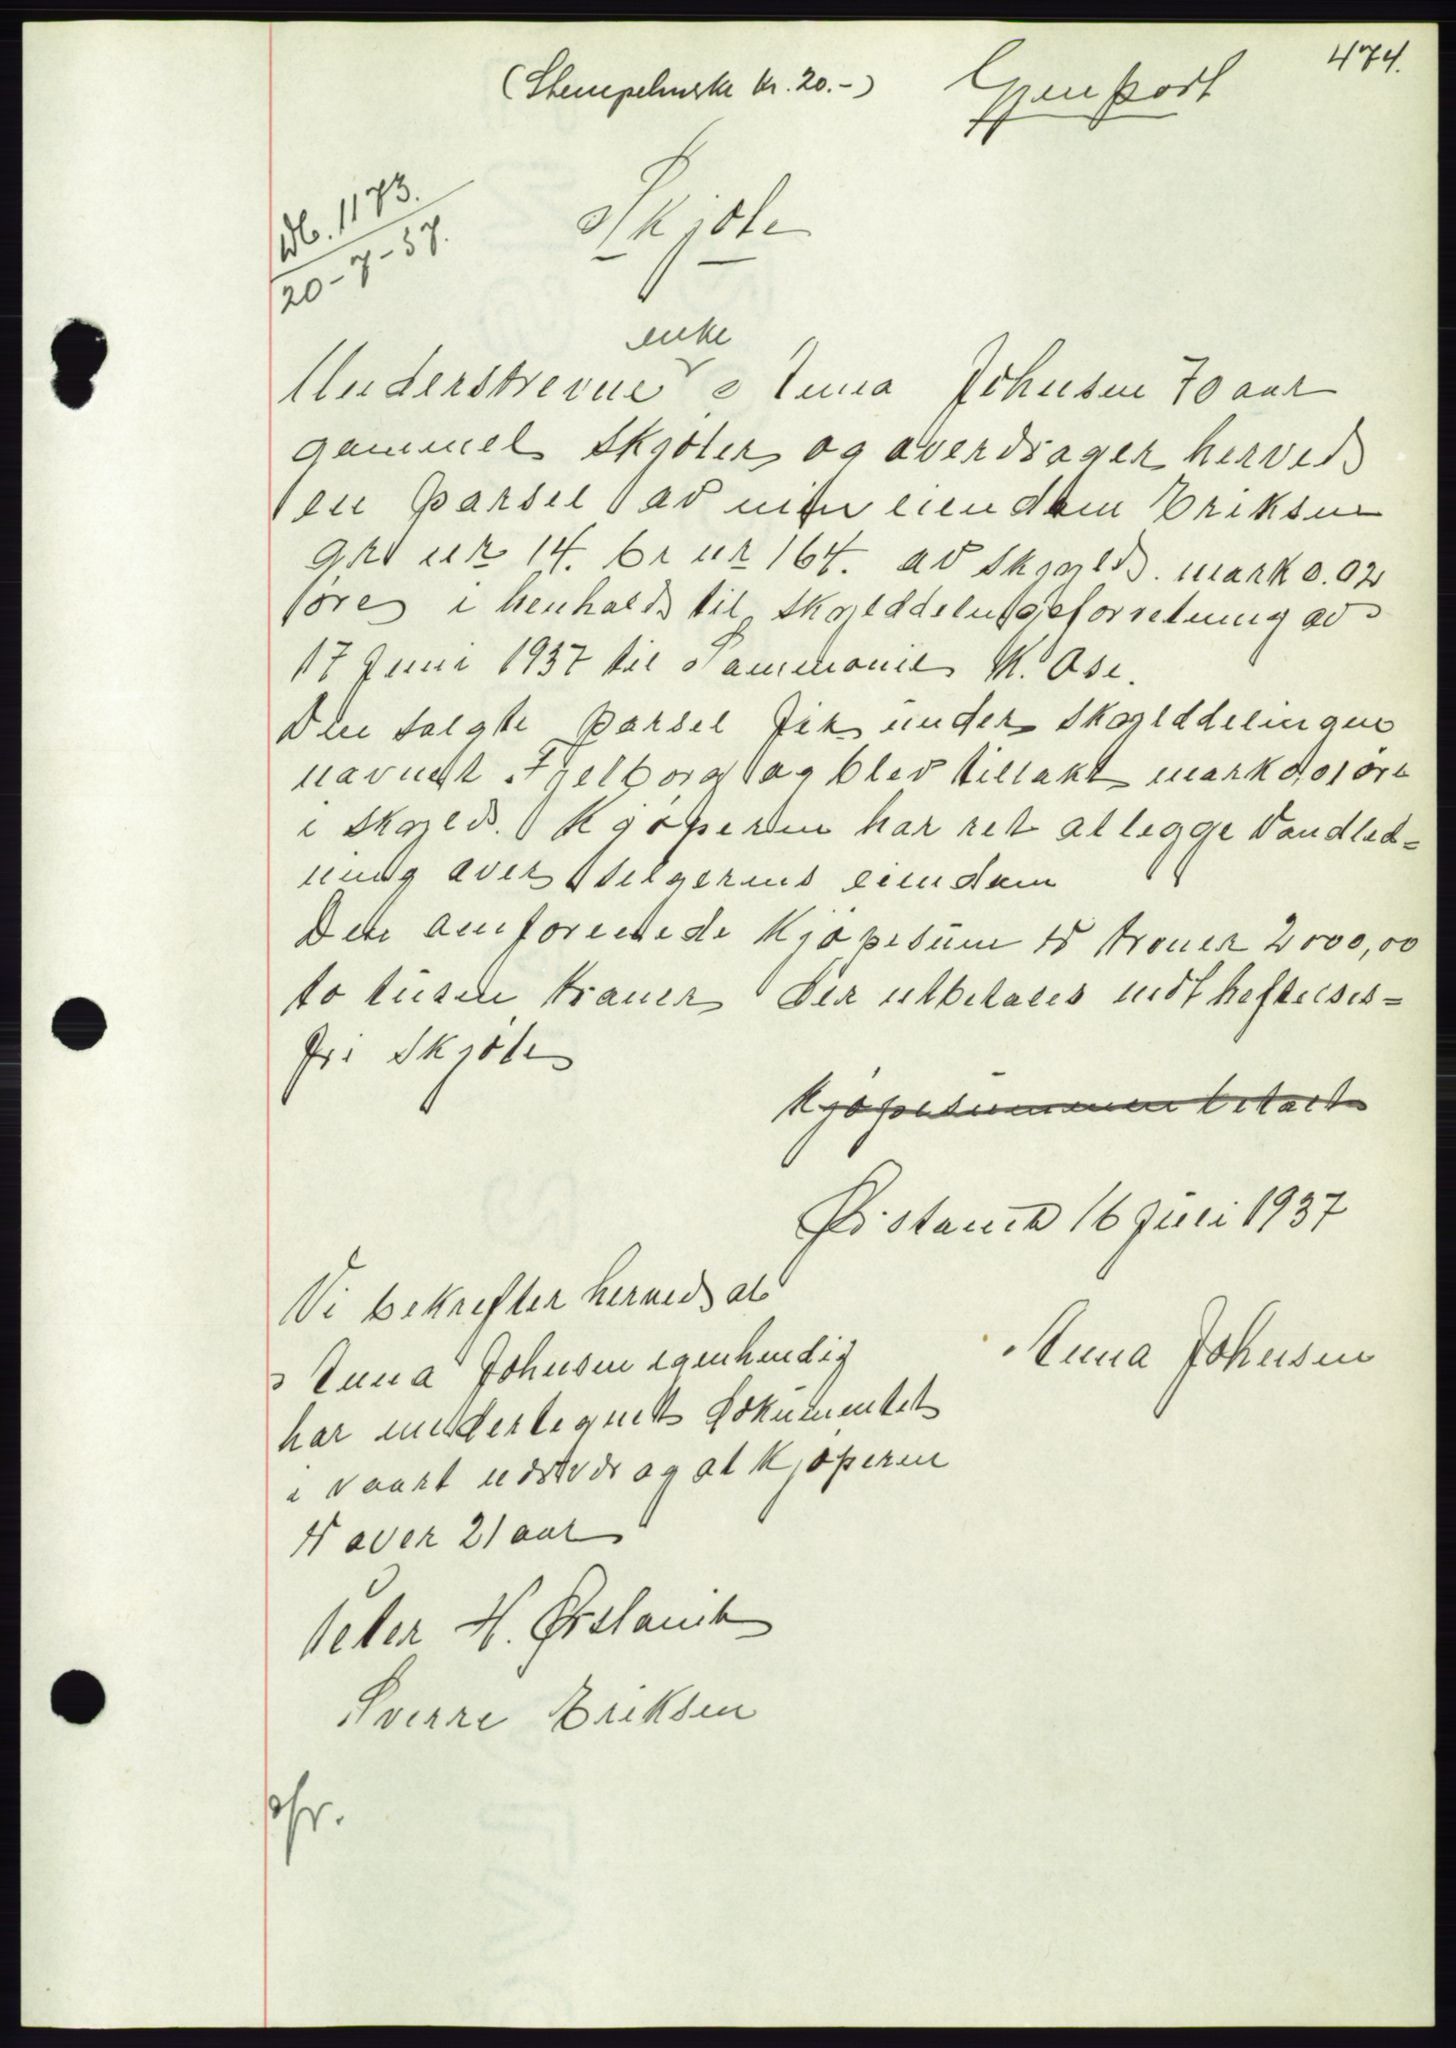 474.
(Stempelmerke kr. 20.-) Gjenpart
Db. 1173.
20-7-37.
Skjøte
enke
Underskrevne Anna Johnsen 70 aar
gammel skjøter og overdrager herved
en parsel av min eiendom Eriksen
gr nr 14. br nr 164. av skyld. mark 0.02
øre i henhold til skylddelingsforretning av
17 Juni 1937 til K. Ose.
Den solgte parsel fik under skylddelingen
navnet Fjelborg og blev tillakt mark 0,01 øre
i skyld. Kjøperen har ret at legge Vandled=
ning over selgerens eiendom
Den omforenede Kjøpesum er kroner 2000,00
to tusen kroner der utbetales mot heftelses=
fri skjøte
Kjøpesummen betalt
Ørstavik 16 Juli 1937
Vi bekrefter herved at
Anna Johnsen egenhendig
har undertegnet dokumentet
i vaart nærvær og at Kjøperen
er over 21 aar
Anna Johnsen
Peter H. Ørstavik
Sverre Eriksen